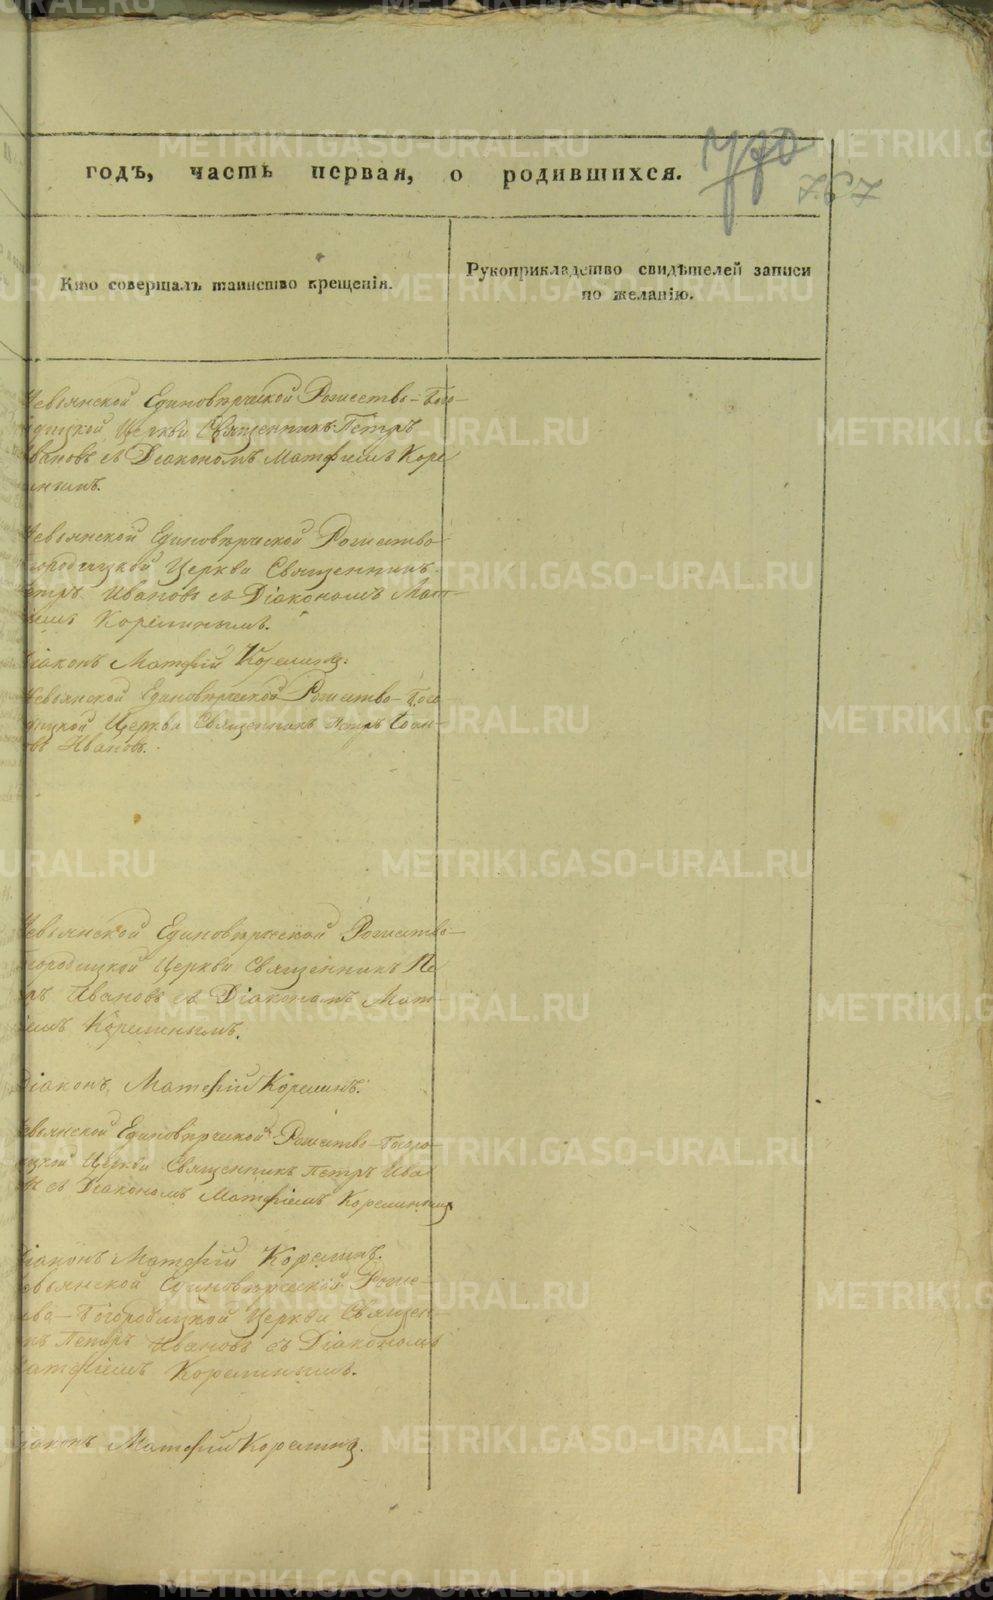 770
767
годъ, часть первая, о родившихся.
Кто совершалъ таинство крещенія.
Рукоприкладство свидѣтелей записи
по желанію.
Невьянской Единовѣрческой Рожество-Бого-
одицкой Церкви Священникъ Петръ
Ивановъ съ Діакономъ Матфіемъ Коре
инымъ.
Невьянской Единовѣрческой Рожество
огородицкой Церкви Священникъ
етръ Ивановъ съ Діакономъ Мат-
іемъ Корелинымъ.
Діаконъ Матфій Корелинъ.
Невьянской Единовѣрческой Рожество-Бого
дицкой Церкви Священникъ Петръ
овъ Ивановъ.
Невьянской Единовѣрческой Рожество-
огородицкой Церкви Священникъ Пе
ръ Ивановъ съ Діакономъ Мат-
іемъ Корелинымъ.
Діаконъ Матфій Корелинъ.
евьянской Единовѣрческой Рожество-Богоро-
ицкой Церкви Священникъ Петръ Ива
съ Діакономъ Матфіемъ Корелинымъ
Діаконъ Матфій Корелинъ.
евьянской Единовѣрческой Роже-
во-Богородицкой Церкви Священ-
къ Петръ Ивановъ съ Діакономъ
атфіемъ Корелинымъ.
іаконъ Матфій Корелинъ.
METRIKI.GASO-URAL.RU